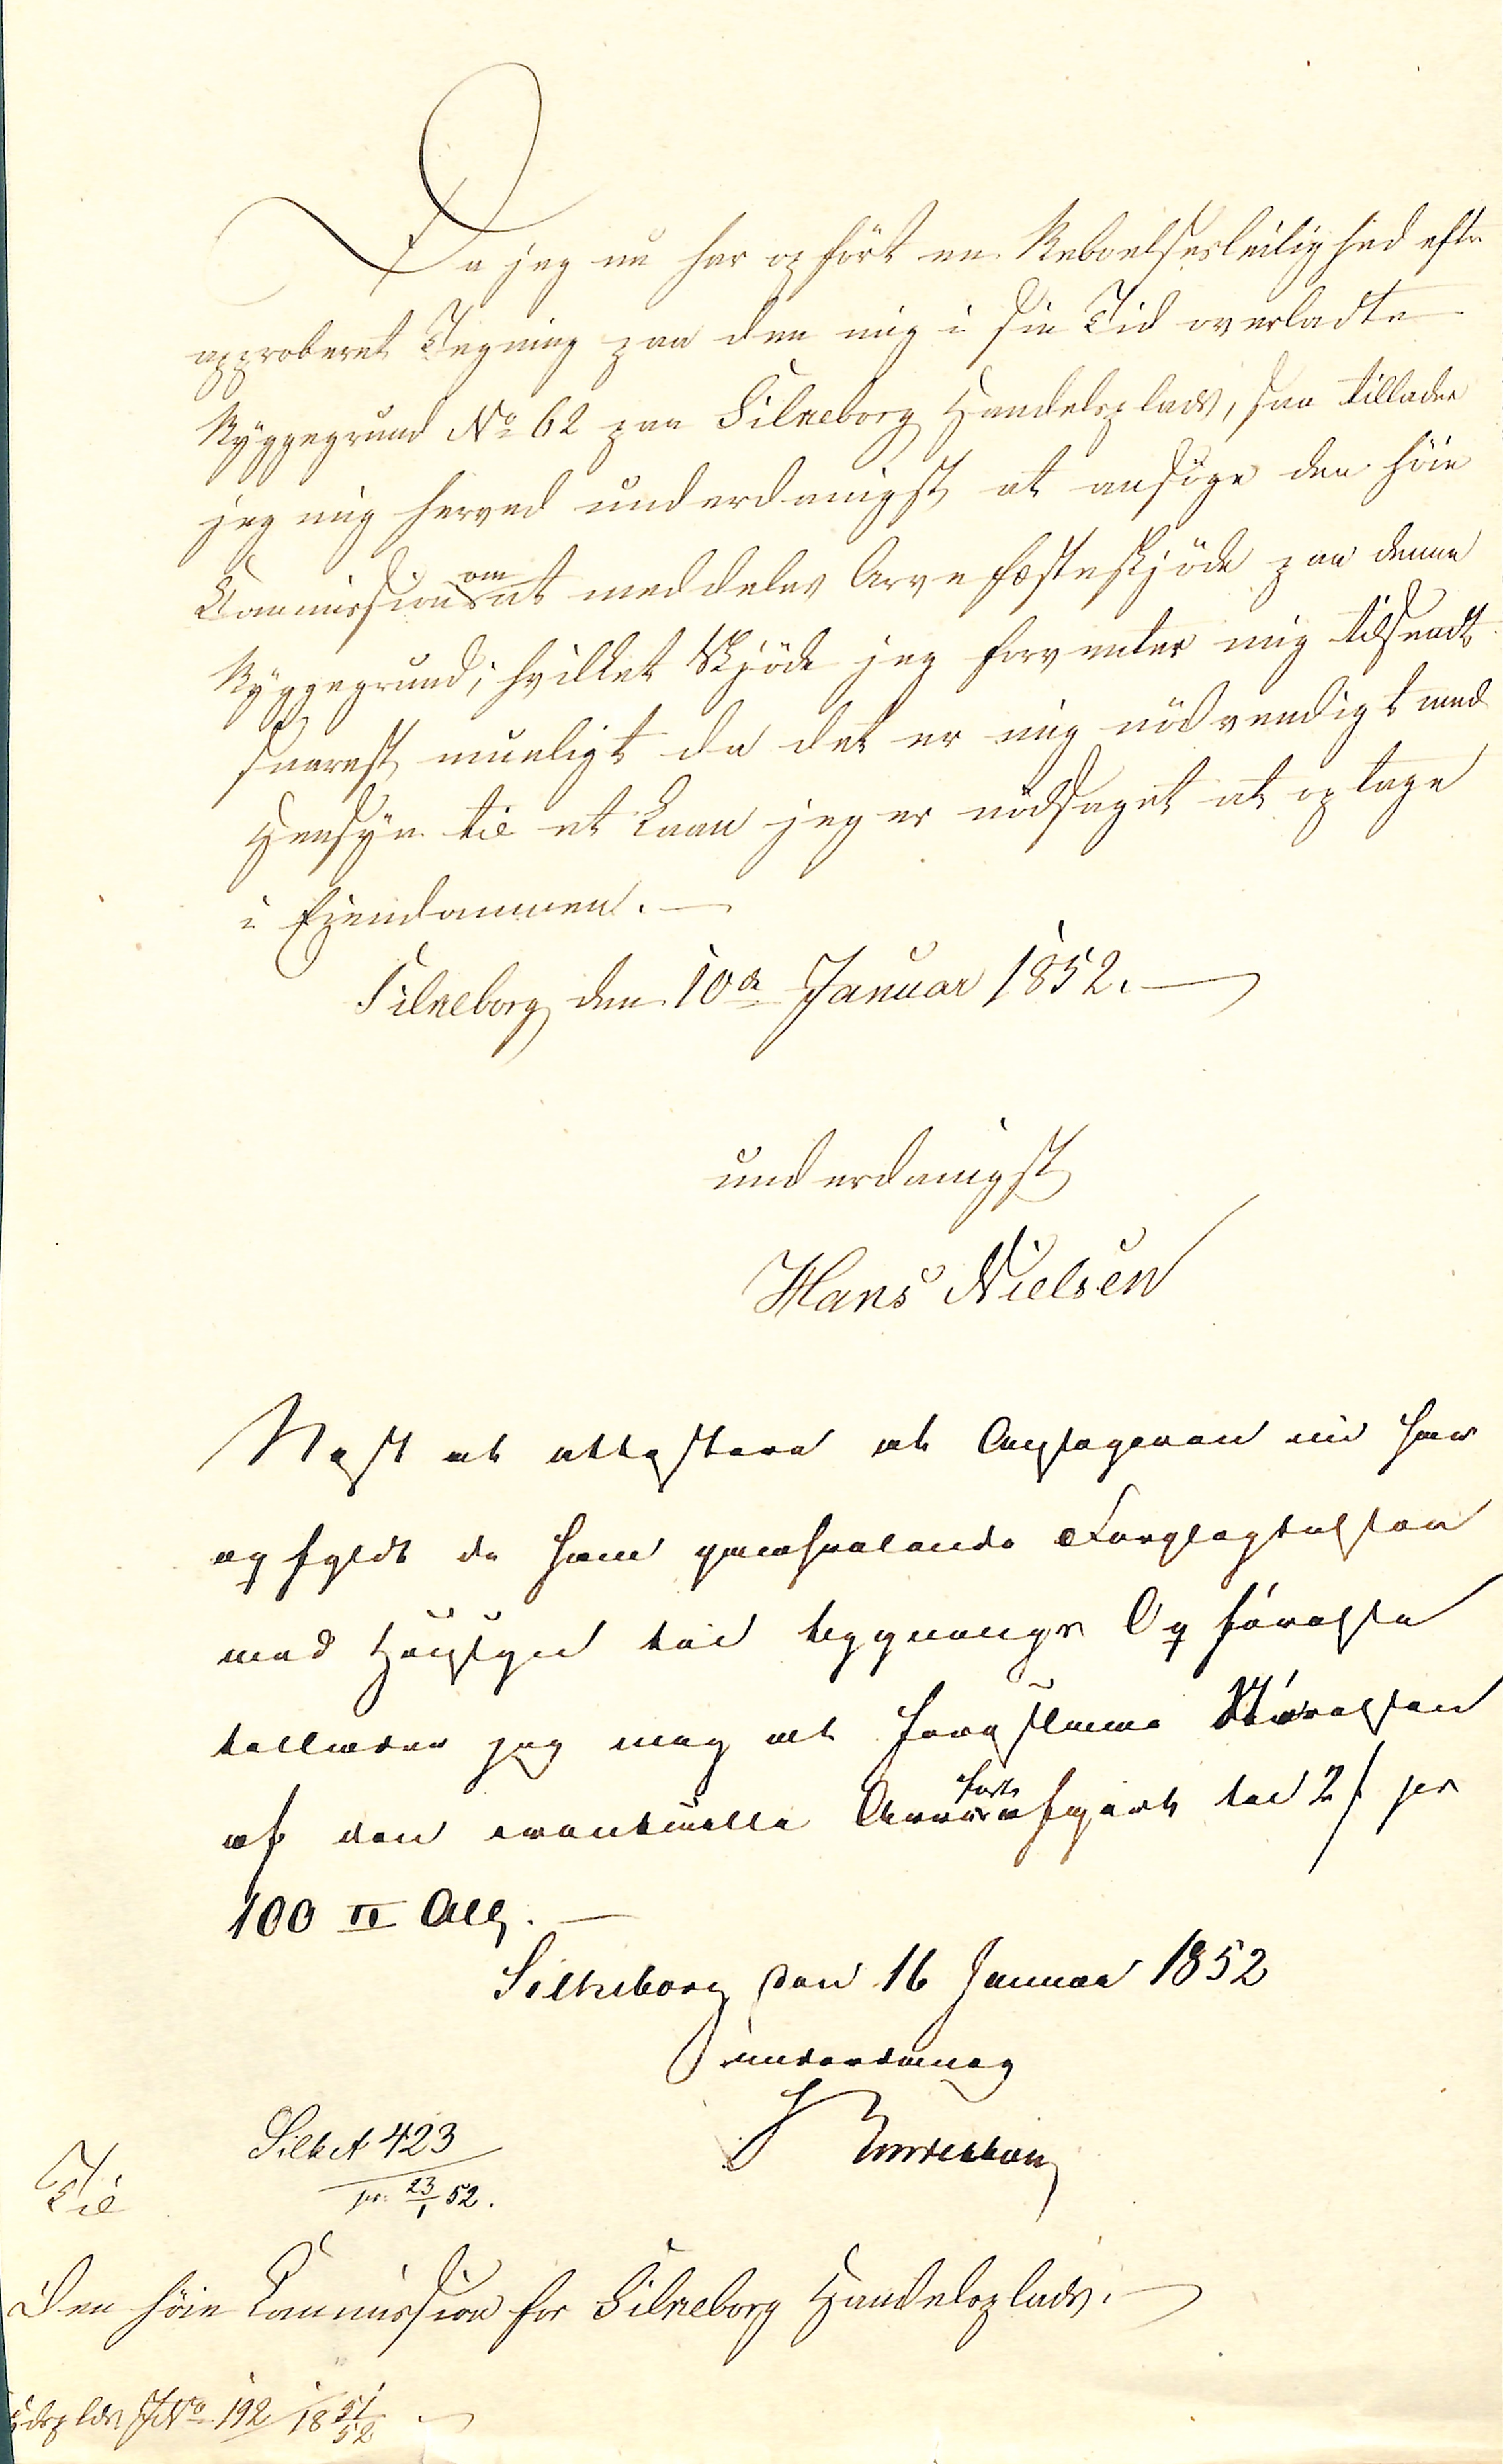 Da jeg nu har opført en Beboelsesleilighed efter
approberet Tegning paa den mig i sin Tid overladte
Byggegrund No 62 paa Silkeborg Handelsplads, saa tillader
jeg mig herved underdanigst at ansøge den høie
Commission om at meddeles Arvefæsteskjøde paa denne
Byggegrund; hvilket Skjøde jeg forventer mig tilsendt
snarest mueligt da det er mig nødvendigt med
Hensyn til et Laan jeg er nødsaget at optage
i Ejendommen.
Silkeborg den 10de Januar 1852.
underdanigst
Hans Nielsen
Næst at attestere at Ansøgeren nu har
opfyldt de ham paahvilende Forpligtelser
med Hensyn til Bygnings Opførelse
tillader jeg mig at foreslaae Størrelsen
af den eventuelle Arvefæsteafgivt til 2 ß pr
100 □ Al.
Silkeborg den 16 Januar 1852
underdanig
Silk A 423
pr. 23/1 52.
Til
Den høie Commission for Silkeborg Handelsplads.
Hdsplds J No 192 1851/52